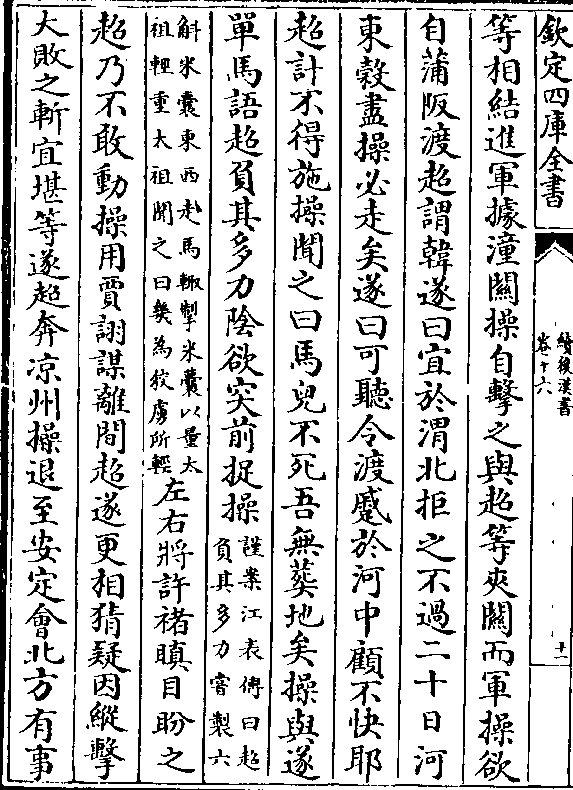 欽定四庫全書
續後漢書
卷十六
十一
等相結進軍據潼關操自擊之與超等夾關而軍操欲
自蒲阪渡超謂韓遂曰宜於渭北拒之不過二十日河
東穀盡操必走矣遂曰可聽令渡蹙於河中顧不快耶
超計不得施操聞之曰馬兒不死吾無葬地矣操與遂
單馬語超負其多力陰欲突前捉操
謹案江表傳曰超
負其多力嘗製六
斛米囊東西走馬輙掣米囊以量太
祖輕重太祖聞之曰幾為狡虜所輕
左右將許褚瞋目盼之
超乃不敢動操用賈詡謀離間超遂更相猜疑因縱擊
大敗之斬宜堪等遂超奔凉州操退至安定會北方有事